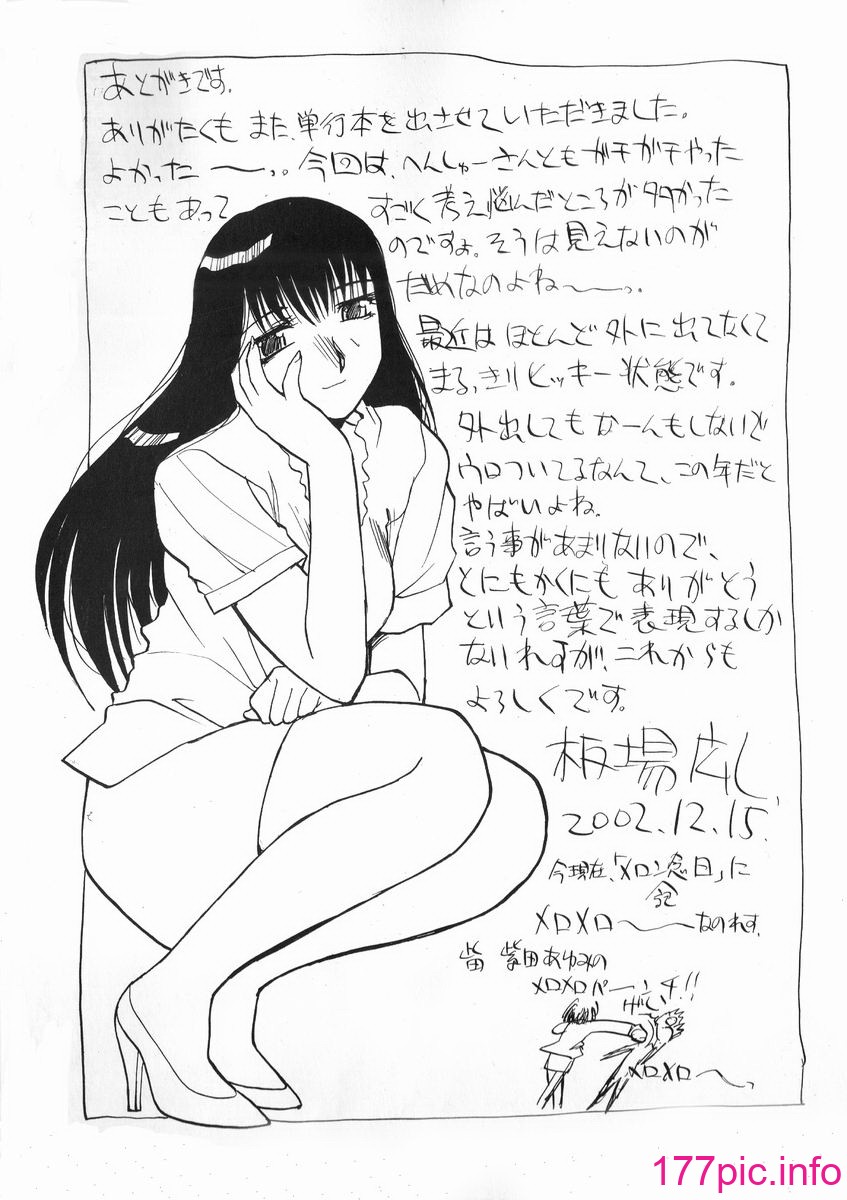 あとがきです。
ありがたくも また、単行本を出させていただきました。
よかったー～っ。今回は、へんしゅーさんともガチガチやった
こともあって すごく考え悩んだところが多かった
のですよ。そうは見えないのが
だめなのよね～ーっ。
最近は ほとんど外に出てなくて
まるっきりヒッキー状態です。
外出しても なーんもしないで
ウロついてるなんて、この年だと
やばいよね。
言う事があまりないので、
とにもかくにも ありがとう
という言葉で表現するしか
ないれすが、これからも
よろしくです。
板場広し
2002.12.15.
今現在、「メロン記念日」に
メロメロ～ーなのれす。
柴田あゆみの
メロメロパーンチ!!
メロメロ～っ
177pic.info